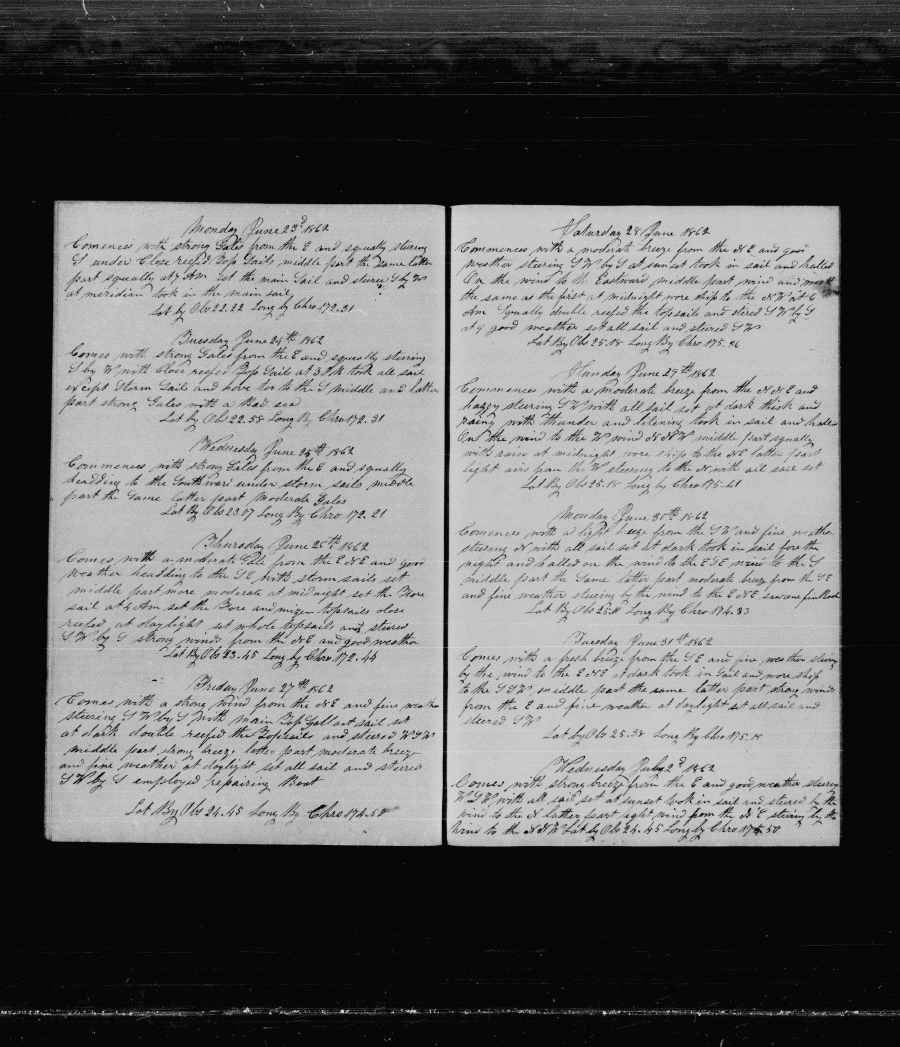 Monday June 23d 1862
Comences with strong Gales from the E and squally steering
S under Close reefed Top Sails middle part the same latter
part squally at 7 Am set the main Sail and steered S by W
at meridian took in the main sail
Lat by Obs 22.22 Long by Chro 172.31
Tuesday June 24th 1862
Comes with strong Gales from the E and squally steering
S by W with Close reefed Top Sails at 3 PM took all sail
except Storm Sails and hove too to the S middle and latter
part strong Gales with a Bad sea
Lat by Obs 22.58 Long By Chro 172.31
Wednesday June 25th 1862
Commences with strong Gales from the E and squally
headding to the Southward under storm sails middle
part the Same latter part moderate Gales
Lat By Obs 23.07 Long By Chro 172.21
Thursday June 26th 1862
Comes with a moderate Gale from the E N E and good
weather headding to the S E with storm sails set
middle part more moderate at midnight set the Fore
sail at 4 Am set the Fore and mizen topsails close
reefed, at daylight set whole topsails and steered
S W by S strong winds from the N E and good weather
Lat By Obs 23.45 Long by Chro 172.44
Friday June 27th 1862
Comes with a strong wind from the N E and fine weather
steering S W by S with main Top Gall ant sail set
at dark double reefed the Topsails and steered W S W
middle part strong breeze latter part moderate breeze
and fine weather at daylight set all sail and steered
S W by S employed repairing Boat
Lat By Obs 24.45 Long By Chro 174.58
Saturday 28 June 1862
Commences with a moderate breeze from the N E and good
weather steering S W by S at sunset took in sail and halled
On the wind to the Eastward middle part wind and
the same as the first at midnight wore ship to the N W at 6
Am Squally double reefed the topsails and steered S W by S
at 9 good weather set all sail and steered S W
Lat By Obs 25.18 Long By Chro 175.26
Sunday June 29th 1862
Commences with a moderate breeze from the N N E and
hazey steering S W with all sail set at dark thick and
rainy with thunder and litening took in sail and halled
On the wind to the W wind N N W middle part squally
with rain at midnight wore ship to the N E latter part
light airs from the W steering to the N with all sail set
Lat By Obs 25.18 Long by Chro 175.41
Monday June 30th 1862
Comences with a light breeze from the S W and fine weather
steering N with all sail set at dark took in sail fore the
night and halled on the wind to the E S E wind to the S
middle part the Same latter part moderate breeze from the S E
and fine weather steering by the wind to the E N E saw one fin Back
Lat By Obs 25.11 Long By Chro 174.33
Tuesday June 31st 1862
Comes with a fresh breeze from the S E and fine weather steering
by the wind to the E N E at dark took in Sail and wore ship
to the S S W, middle part the same latter part strong winds
from the E and fine weather at daylight set all sail and
steered S W
Lat by Obs 25.38 Long By Chro 175.15
Wednesday July 2d 1862
Comes with strong breeze from the E and good weather steering
W S W with all sail set at sunset took in sail and steered by the
wind to the N latter part light wind from the N E steering by the
wind to the N N W Lat by Obs 24.45 Long by Chro 175.50